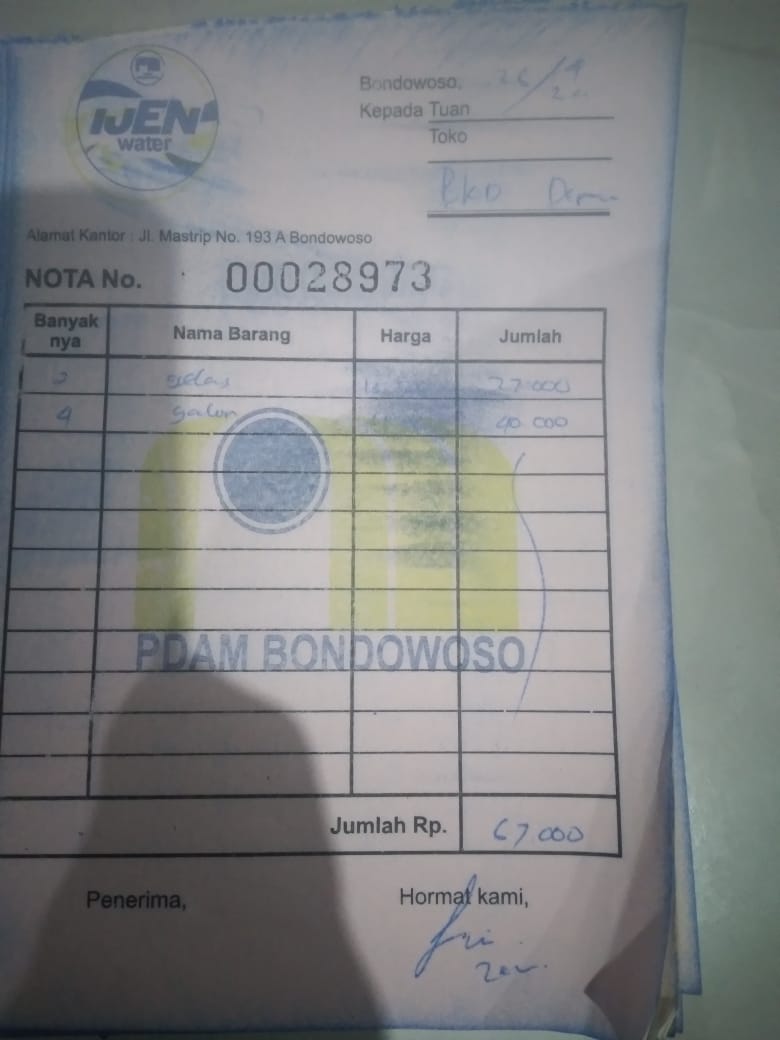 IJEN
water
Bondowoso, 26/4
Kepada Tuan
Toko
BKD
Alamat Kantor : Jl. Mastrip No. 193 A Bondowoso
NOTA No. 00028973
Banyak nya Nama Barang Harga Jumlah
2 gelas 27.000
4 galon 40.000
PDAM BONDOWOSO
Jumlah Rp. 67.000
Penerima, Hormat kami,